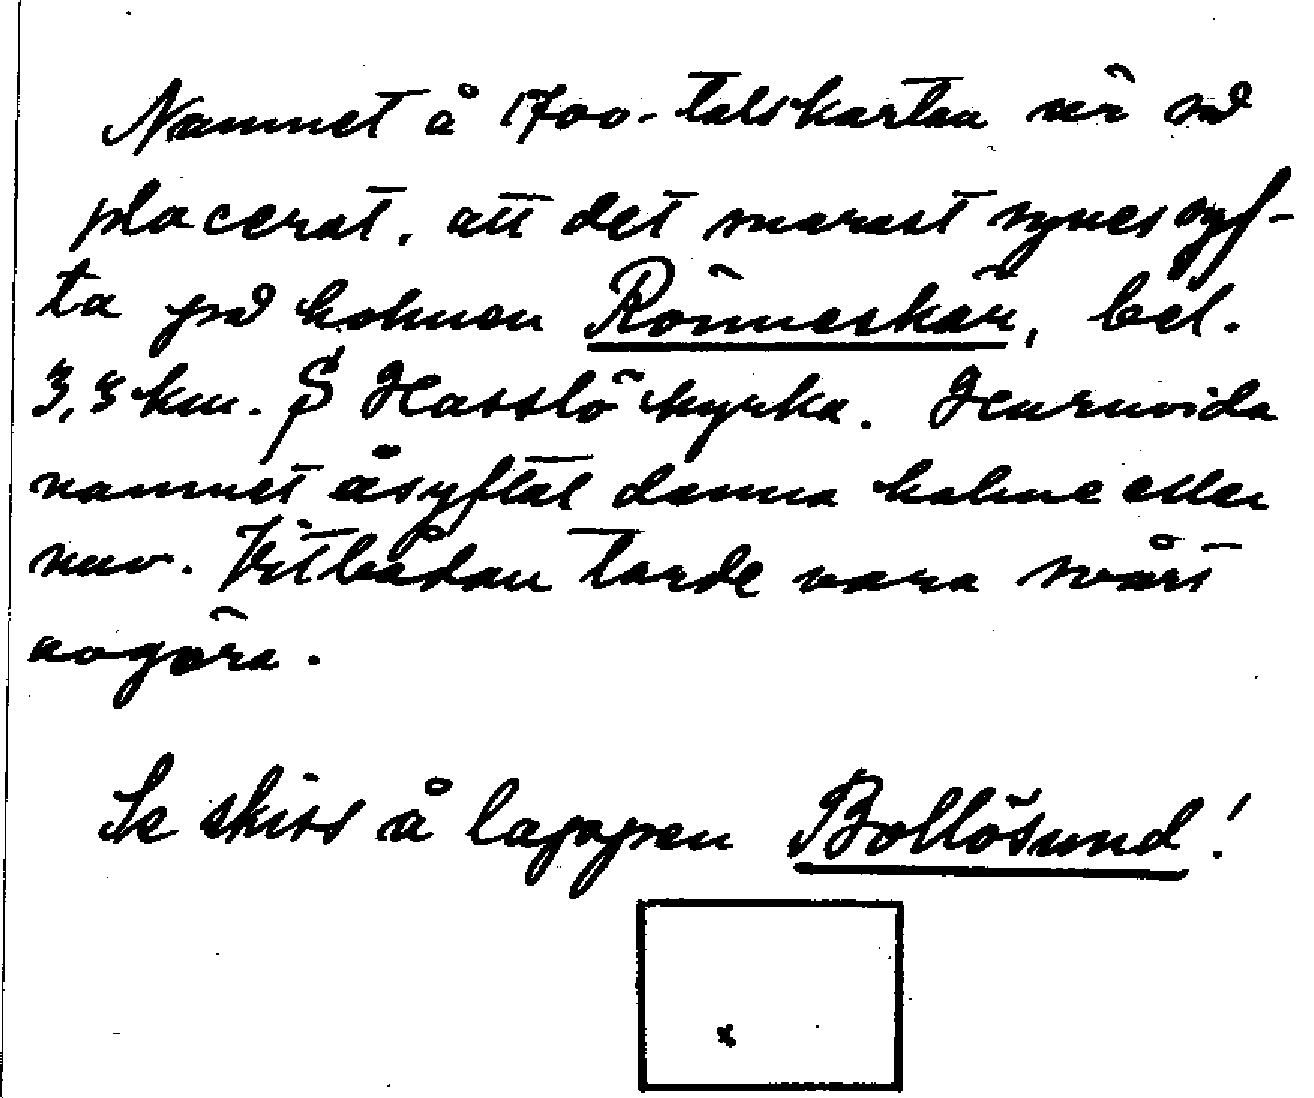 Namnet å 1700-talskartan är så
placerat, att det snarast synes syf-
ta på holmen Rönneskär, bel.
3,3 km. S Hasslö kyrka. Huruvida
namnet åsyftat denna holme eller
nuv. Vitbådan torde vara svårt
avgöra.
Se skiss å lappen Bollösund!